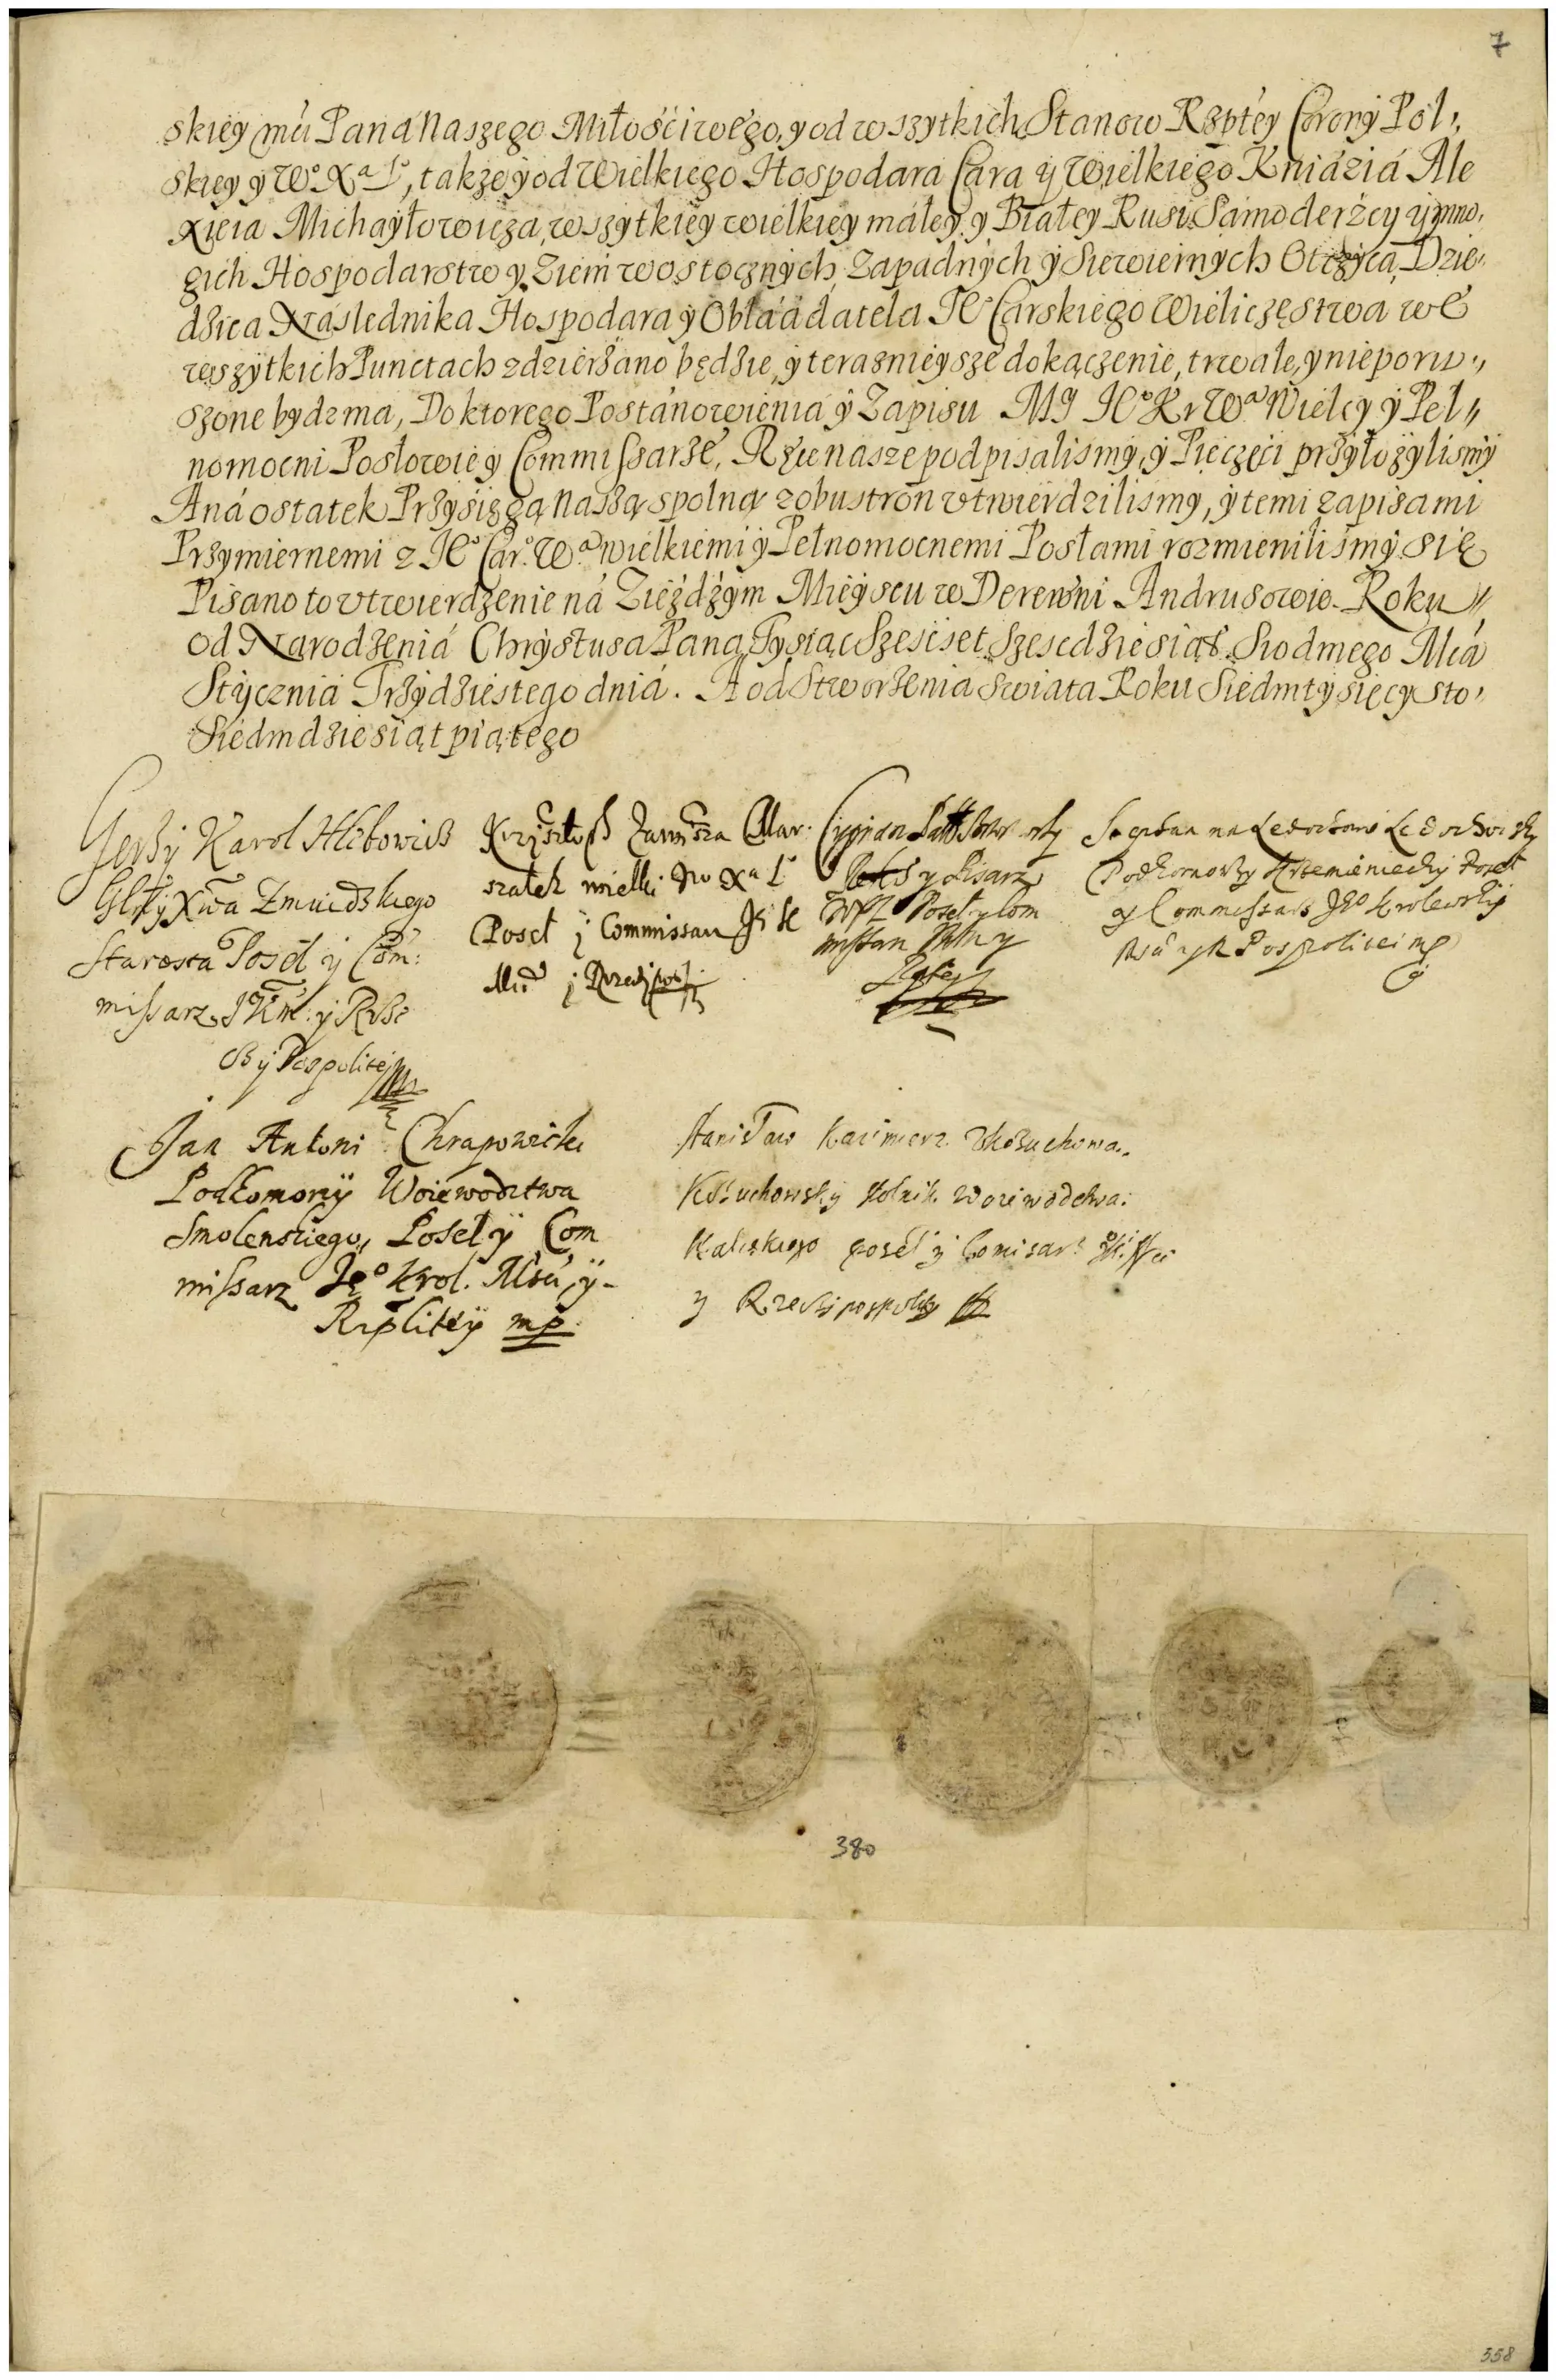 7
skiey mu Pana Naszego Miłościwego, y od wszytkich Stanow Rzptey Corony Pol,,
skiey y Wº Xª Lº, także y od Wielkiego Hospodara Cara y Wielkiego Kniázia Ale
xieia Michayłowicza, wszytkiey wielkiey małey y Białey Rusi Samoderżcy y mno,
gich Hospodarstw y Ziem wostocznych Zapadnych y Siewiernych Otczyca, Dzie,,
dzica Naslednika Hospodara y Obłaadatela Jº Carskiego Wieliczęstwa we
wszytkich Punctach zdzierżano będzie, y teraznieysze dokączenie, trwałe, y nieporu,,
szone bydz ma, Do ktorego Postánowienia y Zapisu My Jº Kr Wª Wielcy y Peł,,
nomocni Posłowie y Commissarze, Ręce nasze podpisalismy, y Pieczęci przyłożylismy
A ná ostatek Przysięgą Naszą spolną z obustron vtwierdzilismy, y temi zapisami
Przymiernemi z Jº Car. Wª wielkiemi y Pełnomocnemi Posłami rozmienilismy się
Pisano to vtwierdzenie ná Zieździym Mieyscu w Derewni Andrusowie. Roku,,
od Narodzenia Chrystusa Pana Tysiąc Szescset Szescdziesiąt Siodmego Mcá
Stycznia Trzydziestego dniá. A od Stworzenia Swiata Roku Siedmtysięcy Sto,
Siedmdziesiąt piątego
Jerzy Karol Hlebowicz
Xwa Zmuidzkiego
Starosta Poseł y Com:
missarz JKM. y Rze
czy Pospolitej
Krzysztoph Zawisza Mar.
szałek wielki Wº Xª Lº
Poseł y Commissarz
y Rzeczypos.
Cyprian
y Pisarz
WXL Poseł y Com
missarz
na Ledochowie Ledochowsky
Podkomorzy Krzemieniecky Poseł
y Commissarz Jeº Krolewskiy
Mści y R Pospolitei mp
Jan Antoni Chrapowicki
Podkomorzÿ Woiewodztwa
Smolenskiego, Poseł ÿ Com
missarz Jeº Krol. Mści ÿ-
Rzplitéÿ mp
Stanisław Kazimierz z Kożuchowa..
Kożuchowsky stolnik Woiewodztwa:
Kaliskiego poseł y Comisarz
y Rzeczipospolity
380
358